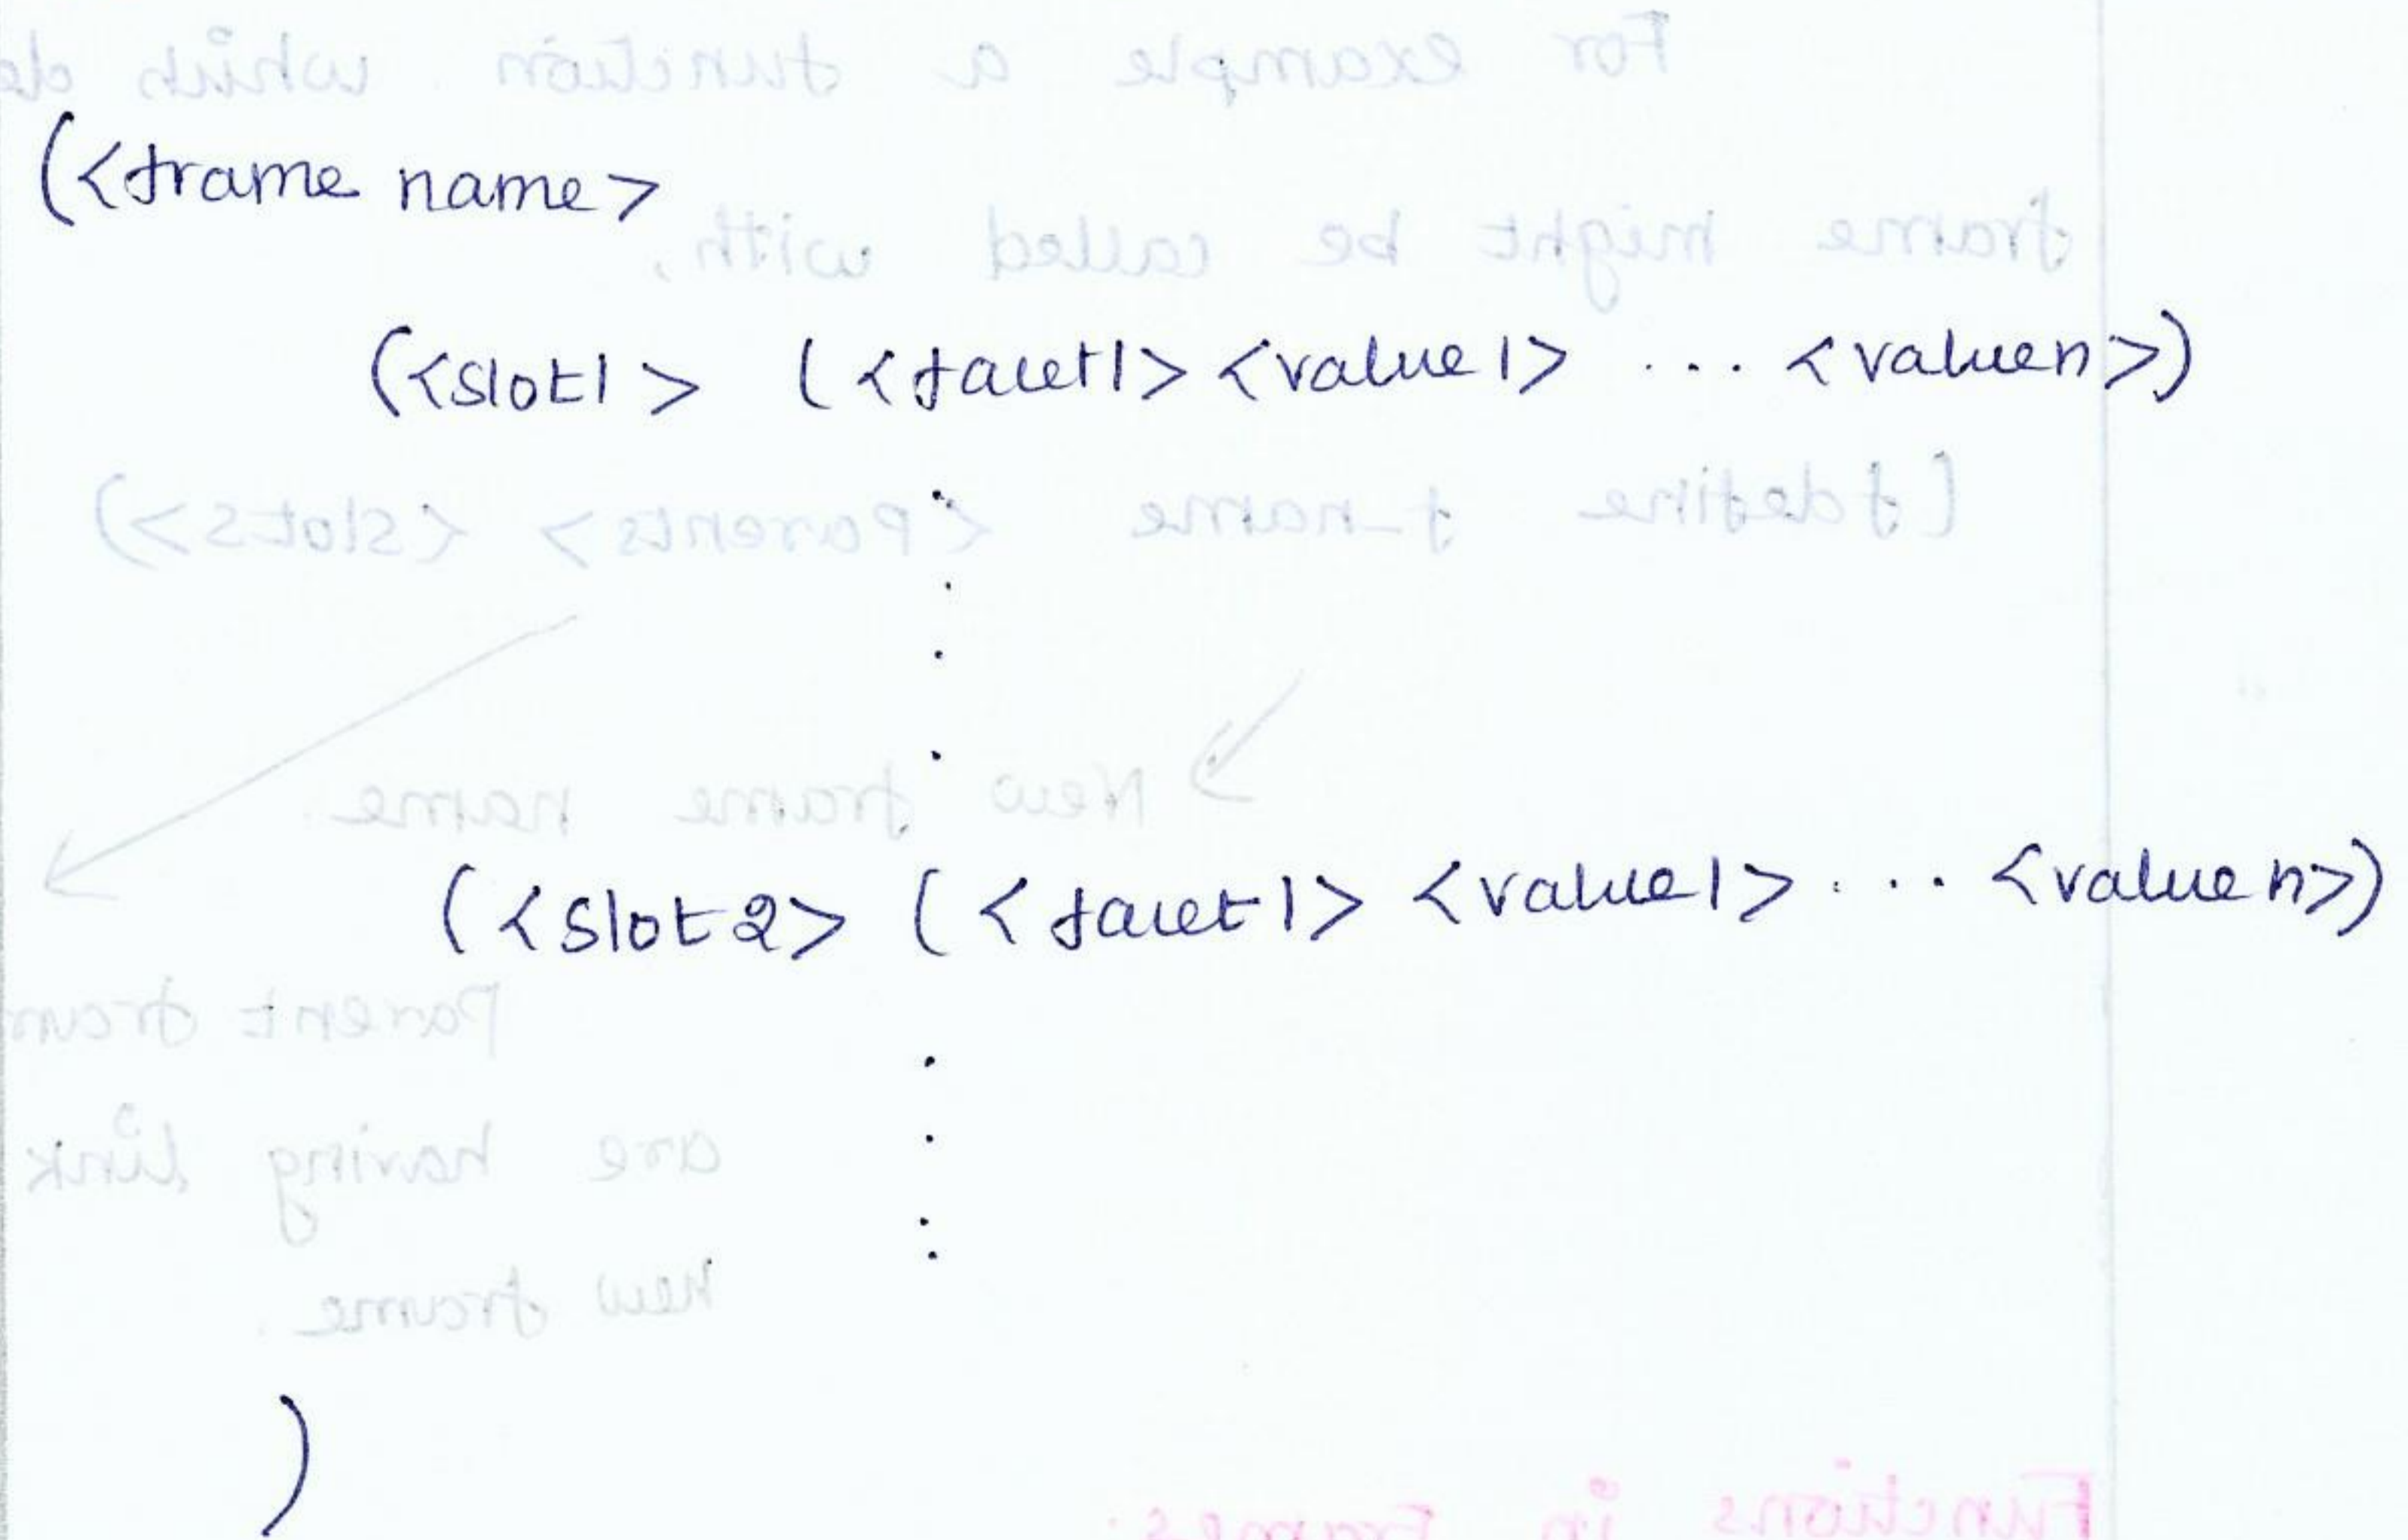 (<frame name>
(<slot1> (<facet1> <value1> ... <valuen>)
.
.
.
.
(<slot2> (<facet1> <value1> ... <valuen>)
.
.
.
.
)